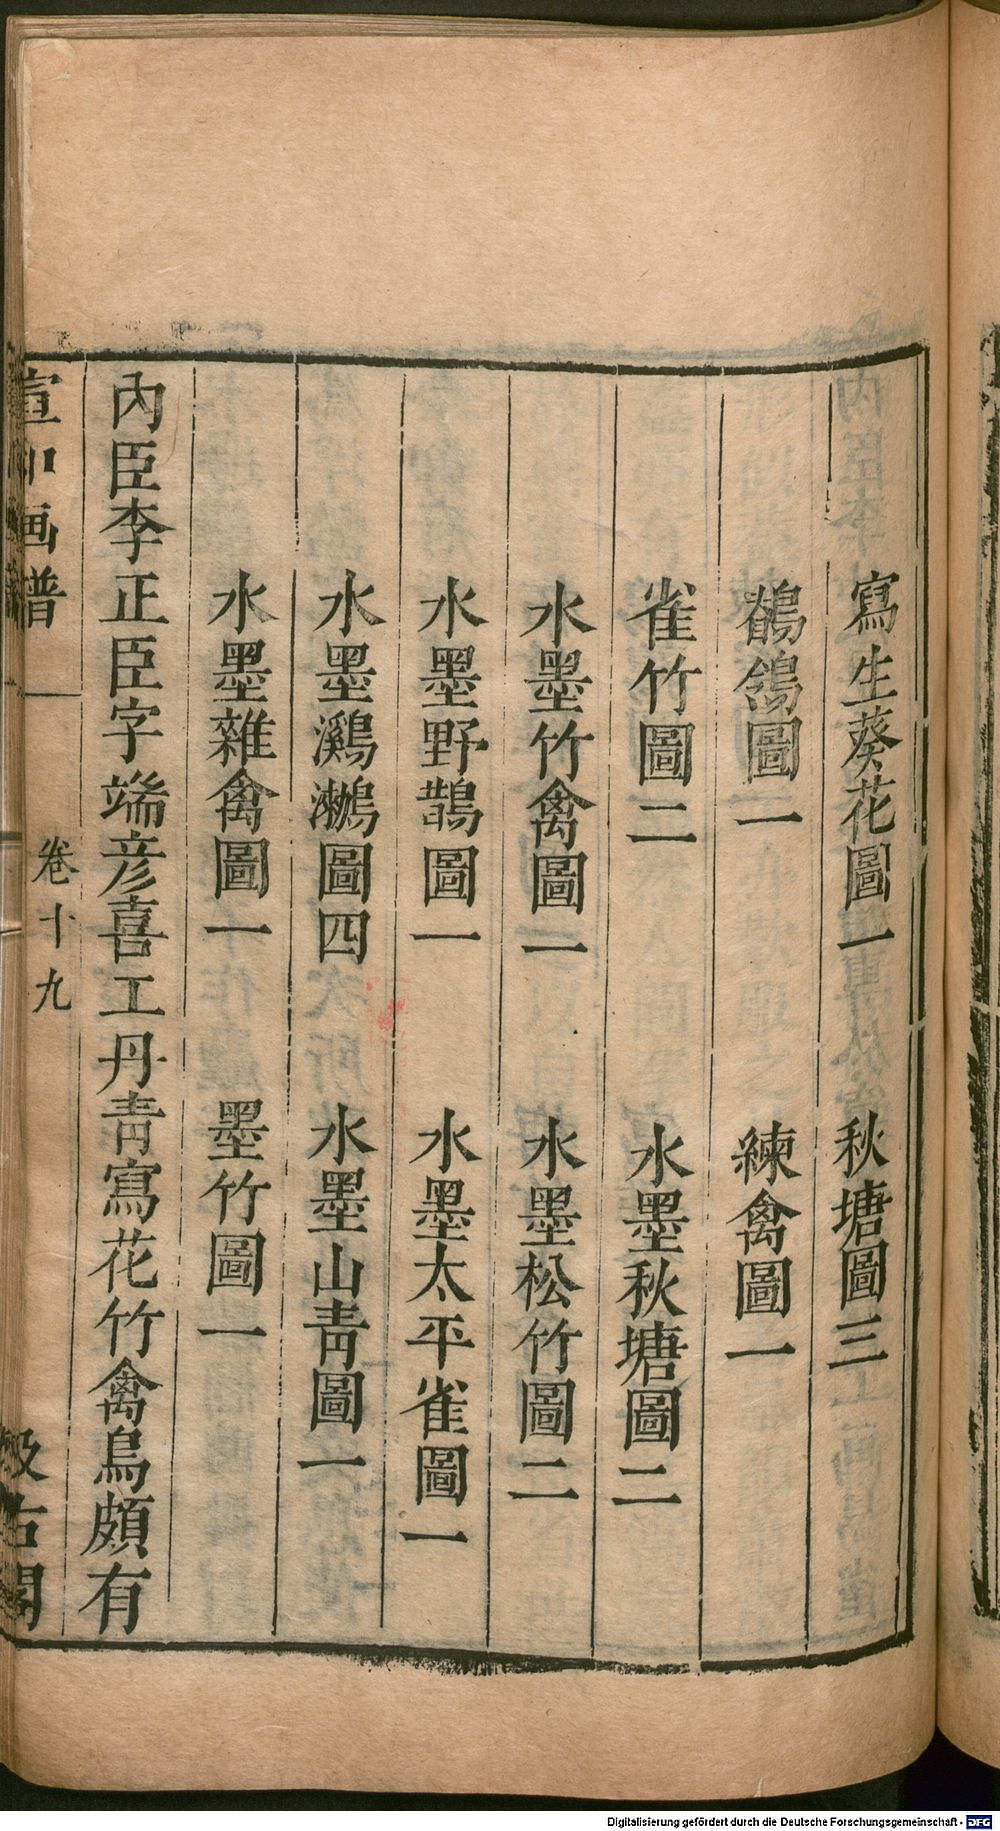 寫生葵花圖一　秋塘圖三
鵓鴿圖一　練禽圖一
雀竹圖二　水墨秋塘圖二
水墨竹禽圖一　水墨松竹圖二
水墨野鵲圖一　水墨太平雀圖一
水墨鸂鷘圖四　水墨山青圖一
水墨雜禽圖一　墨竹圖一
內臣李正臣字端彥喜工丹青寫花竹禽鳥頗有
宣和画譜　卷十九　汲古閣
Digitalisierung gefördert durch die Deutsche Forschungsgemeinschaft - DFG